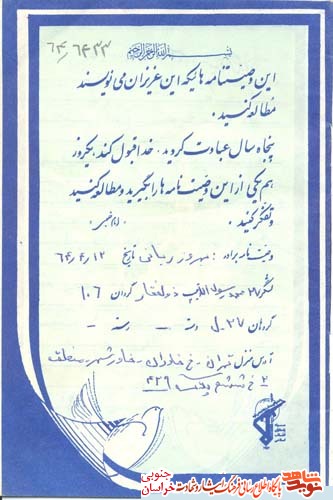 ۶۴/۶۴۳۳
بسم الله الرحمن الرحیم
این وصیتنامه هائیکه این عزیزان می نویسند
مطالعه کنید.
پنجاه سال عبادت کردید، خدا قبول کند، یکروز
هم یکی از این وصیت نامه ها را بگیرید و مطالعه کنید
و تفکر کنید.
«امام خمینی»
وصیتنامه برادر: بهروز ربانی تاریخ ۶۴/۴/۱۲
لشگر ۲۷ محمد رسول الله تیپ ذولفقار گردان ۱۰۶
گروهان ۲۷-ل دسته - رسته -
آدرس منزل تهران - خ خاوران - خاور شهر - منطقه
۲ خ ششم پلاک ۴۲۹
نوید شاهد
پایگاه اطلاع رسانی فرهنگ ایثار و شهادت خراسان جنوبی